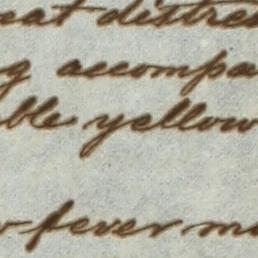 eat distres
g accompa
ble yellow
fever m